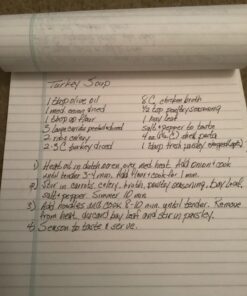 Turkey Soup
1 tbsp olive oil
1 med onion diced
1 tbsp ap flour
3 large carrots peeled + sliced
2 ribs celery
2-3 C turkey diced
8 C chicken broth
1/2 tsp poultry seasoning
1 bay leaf
salt + pepper to taste
4 oz shell pasta
1 tbsp fresh parsley
1) Heat oil in dutch oven over med heat. Add onion + cook
until tender 3-4 min. Add flour + cook for 1 min.
2) Stir in carrots, celery, broth, poultry seasoning, bay leaf,
salt + pepper. Simmer 10 min.
3) Add noodles and cook 8-10 min. until tender. Remove
from heat, discard bay leaf and stir in parsley.
4) Season to taste & serve.